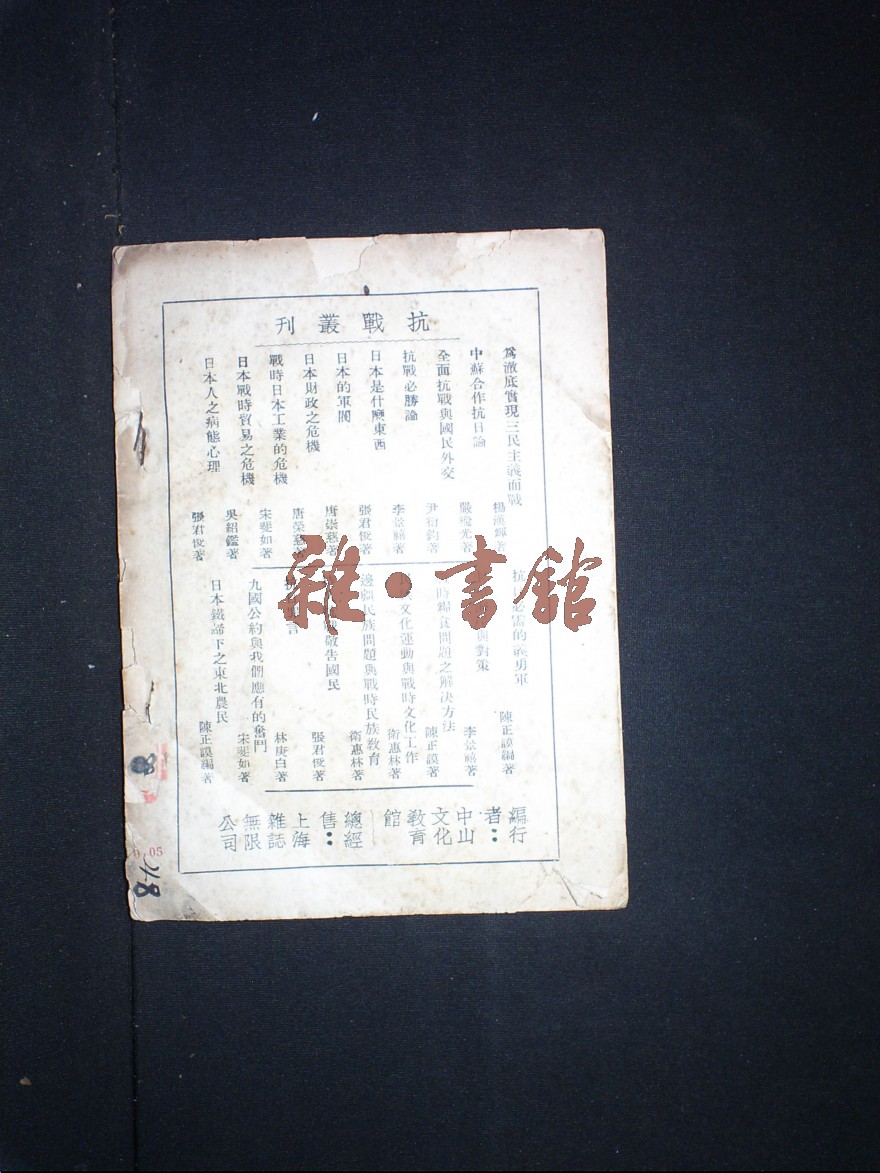 抗戰叢刊
爲澈底實現三民主義而戰 楊漢輝著
中蘇合作抗日論 嚴繼光著
全面抗戰與國民外交 尹衍鈞著
抗戰必勝論 李景禧著
日本是什麽東西 張君俊著
日本的軍閥 唐崇慈著
日本財政之危機 唐榮慈著
戰時日本工業的危機 宋斐如著
日本戰時貿易之危機 吳紹鑑著
日本人之病態心理 張君俊著
抗 必需的義勇軍 陳正謨編著
與對策 李景禧著
時糧食問題之解決方法 陳正謨著
文化運動與戰時文化工作 衛惠林著
邊疆民族問題與戰時民族教育 衛惠林著
敬告國民 張君俊著
言 林庚白著
九國公約與我們應有的奮鬥 宋斐如著
日本鐵蹄下之東北農民 陳正謨編著
編行者：中山文化教育館
總經售：上海雜誌無限公司
雜·書館
0.05
48